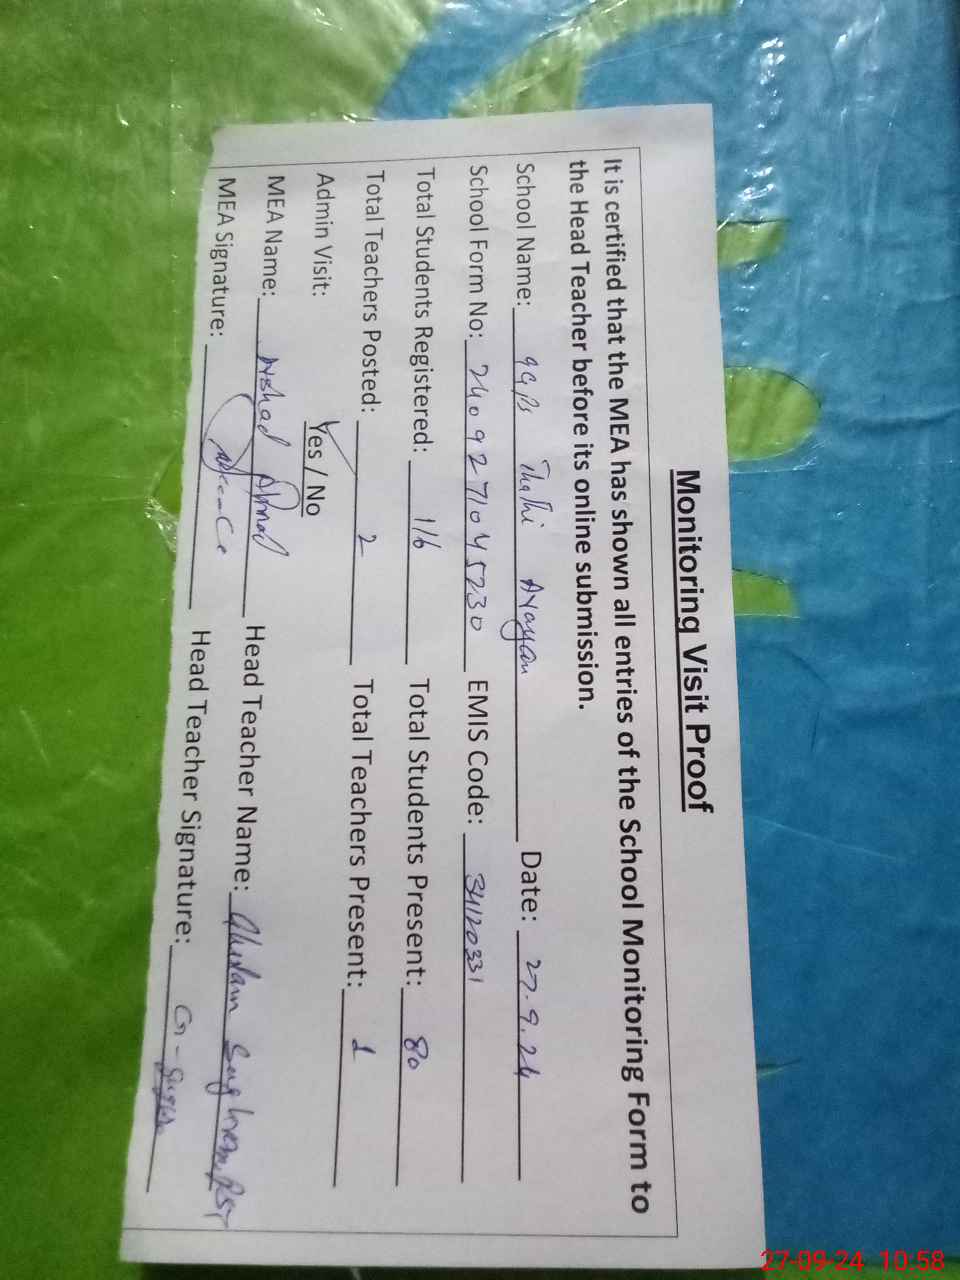 Monitoring Visit Proof
It is certified that the MEA has shown all entries of the School Monitoring Form to
the Head Teacher before its online submission.
School Name: GGPS Thathi Arayyan Date: 27.9.24
School Form No: 2409271045230 EMIS Code: 34120331
Total Students Registered: 116 Total Students Present: 80
Total Teachers Posted: 2 Total Teachers Present: 1
Admin Visit: Yes / No
MEA Name: Arshad Ahmad Head Teacher Name: Ghulam Sughran PST
MEA Signature: Head Teacher Signature: G-
27-09-24 10:58